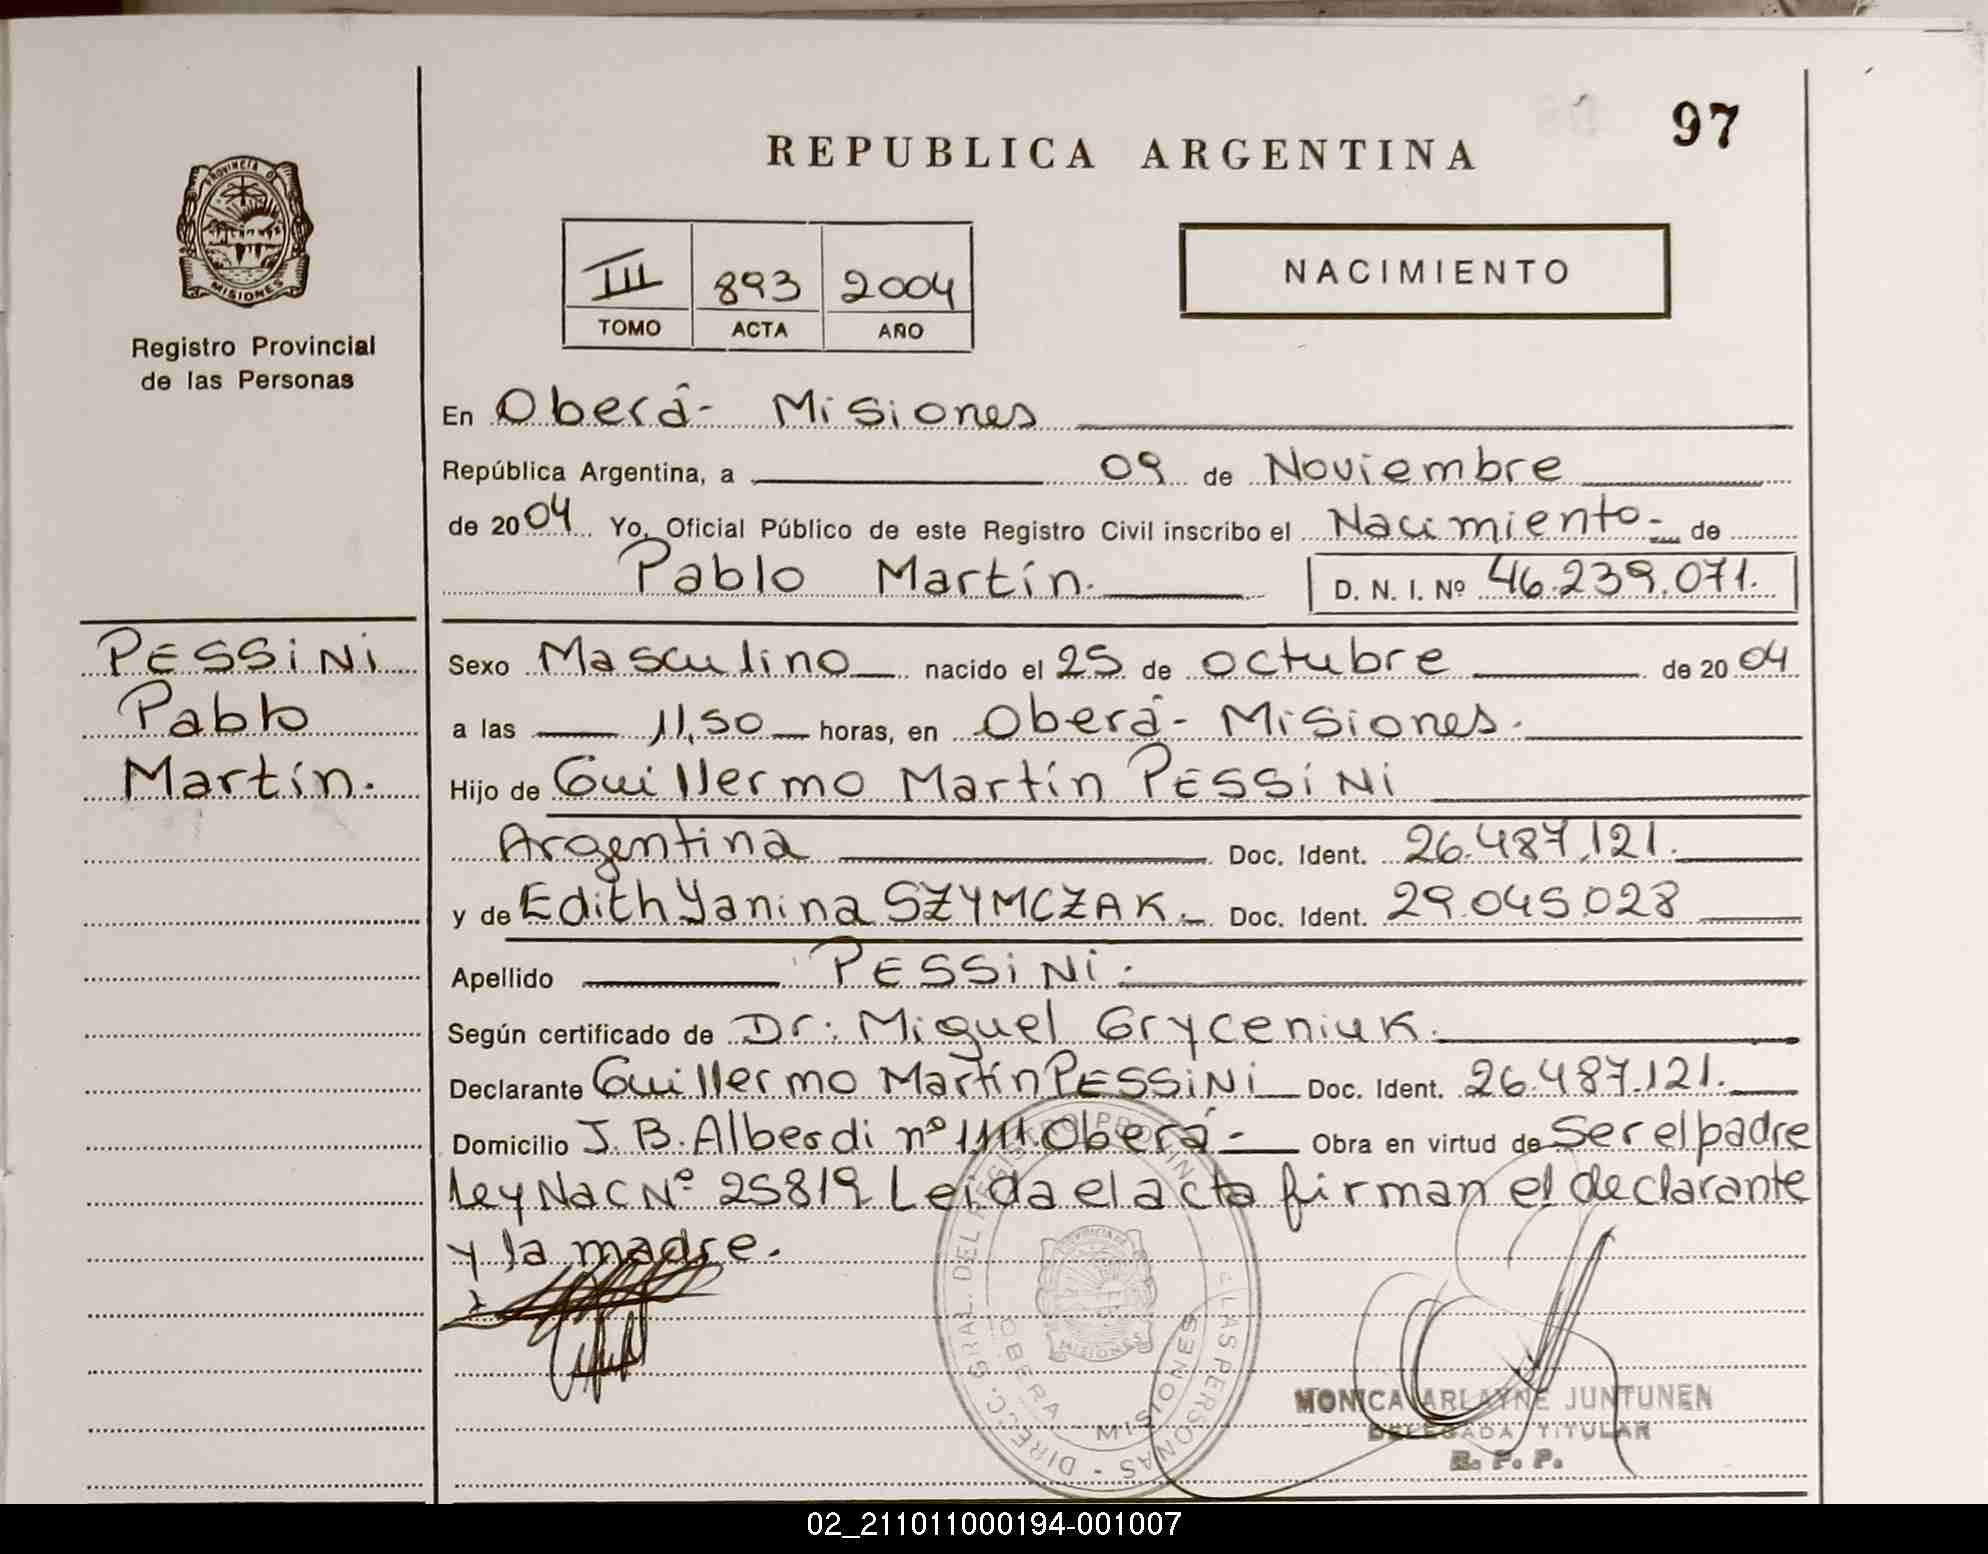 97
REPUBLICA ARGENTINA
PROVINCIA D
MISIONES
Registro Provincial
de las Personas
III 893 2004
TOMO ACTA AÑO
NACIMIENTO
En Oberá- Misiones
República Argentina, a 09 de Noviembre
de 2004 Yo, Oficial Público de este Registro Civil inscribo el Nacimiento- de
Pablo Martín. D. N. I. Nº 46.239.071.
PESSiNi
Pablo
Martín.
Sexo Masculino nacido el 25 de octubre de 2004
a las 11,50 horas, en Oberá- Misiones.
Hijo de Guillermo Martín PESSiNi
Argentina Doc. Ident. 26.487.121.
y de Edith Yanina SZYMCZAK.- Doc. Ident. 29.045.028
Apellido PESSiNi.
Según certificado de Dr: Miguel Gryceniuk.
Declarante Guillermo Martín PESSiNi Doc. Ident. 26.487.121.
Domicilio J. B. Alberdi nº 1111. Oberá- Obra en virtud de Ser el padre
Ley Nac Nº 25819 Leida el acta firman el declarante
y la madre.
DIRECC. GRAL. DEL REGISTRO PROVINCIAL LAS PERSONAS -
OBERA MISIONES
MISIONES
MONICA ARLAYNE JUNTUNEN
DELEGADA TITULAR
R. P. P.
02_211011000194-001007